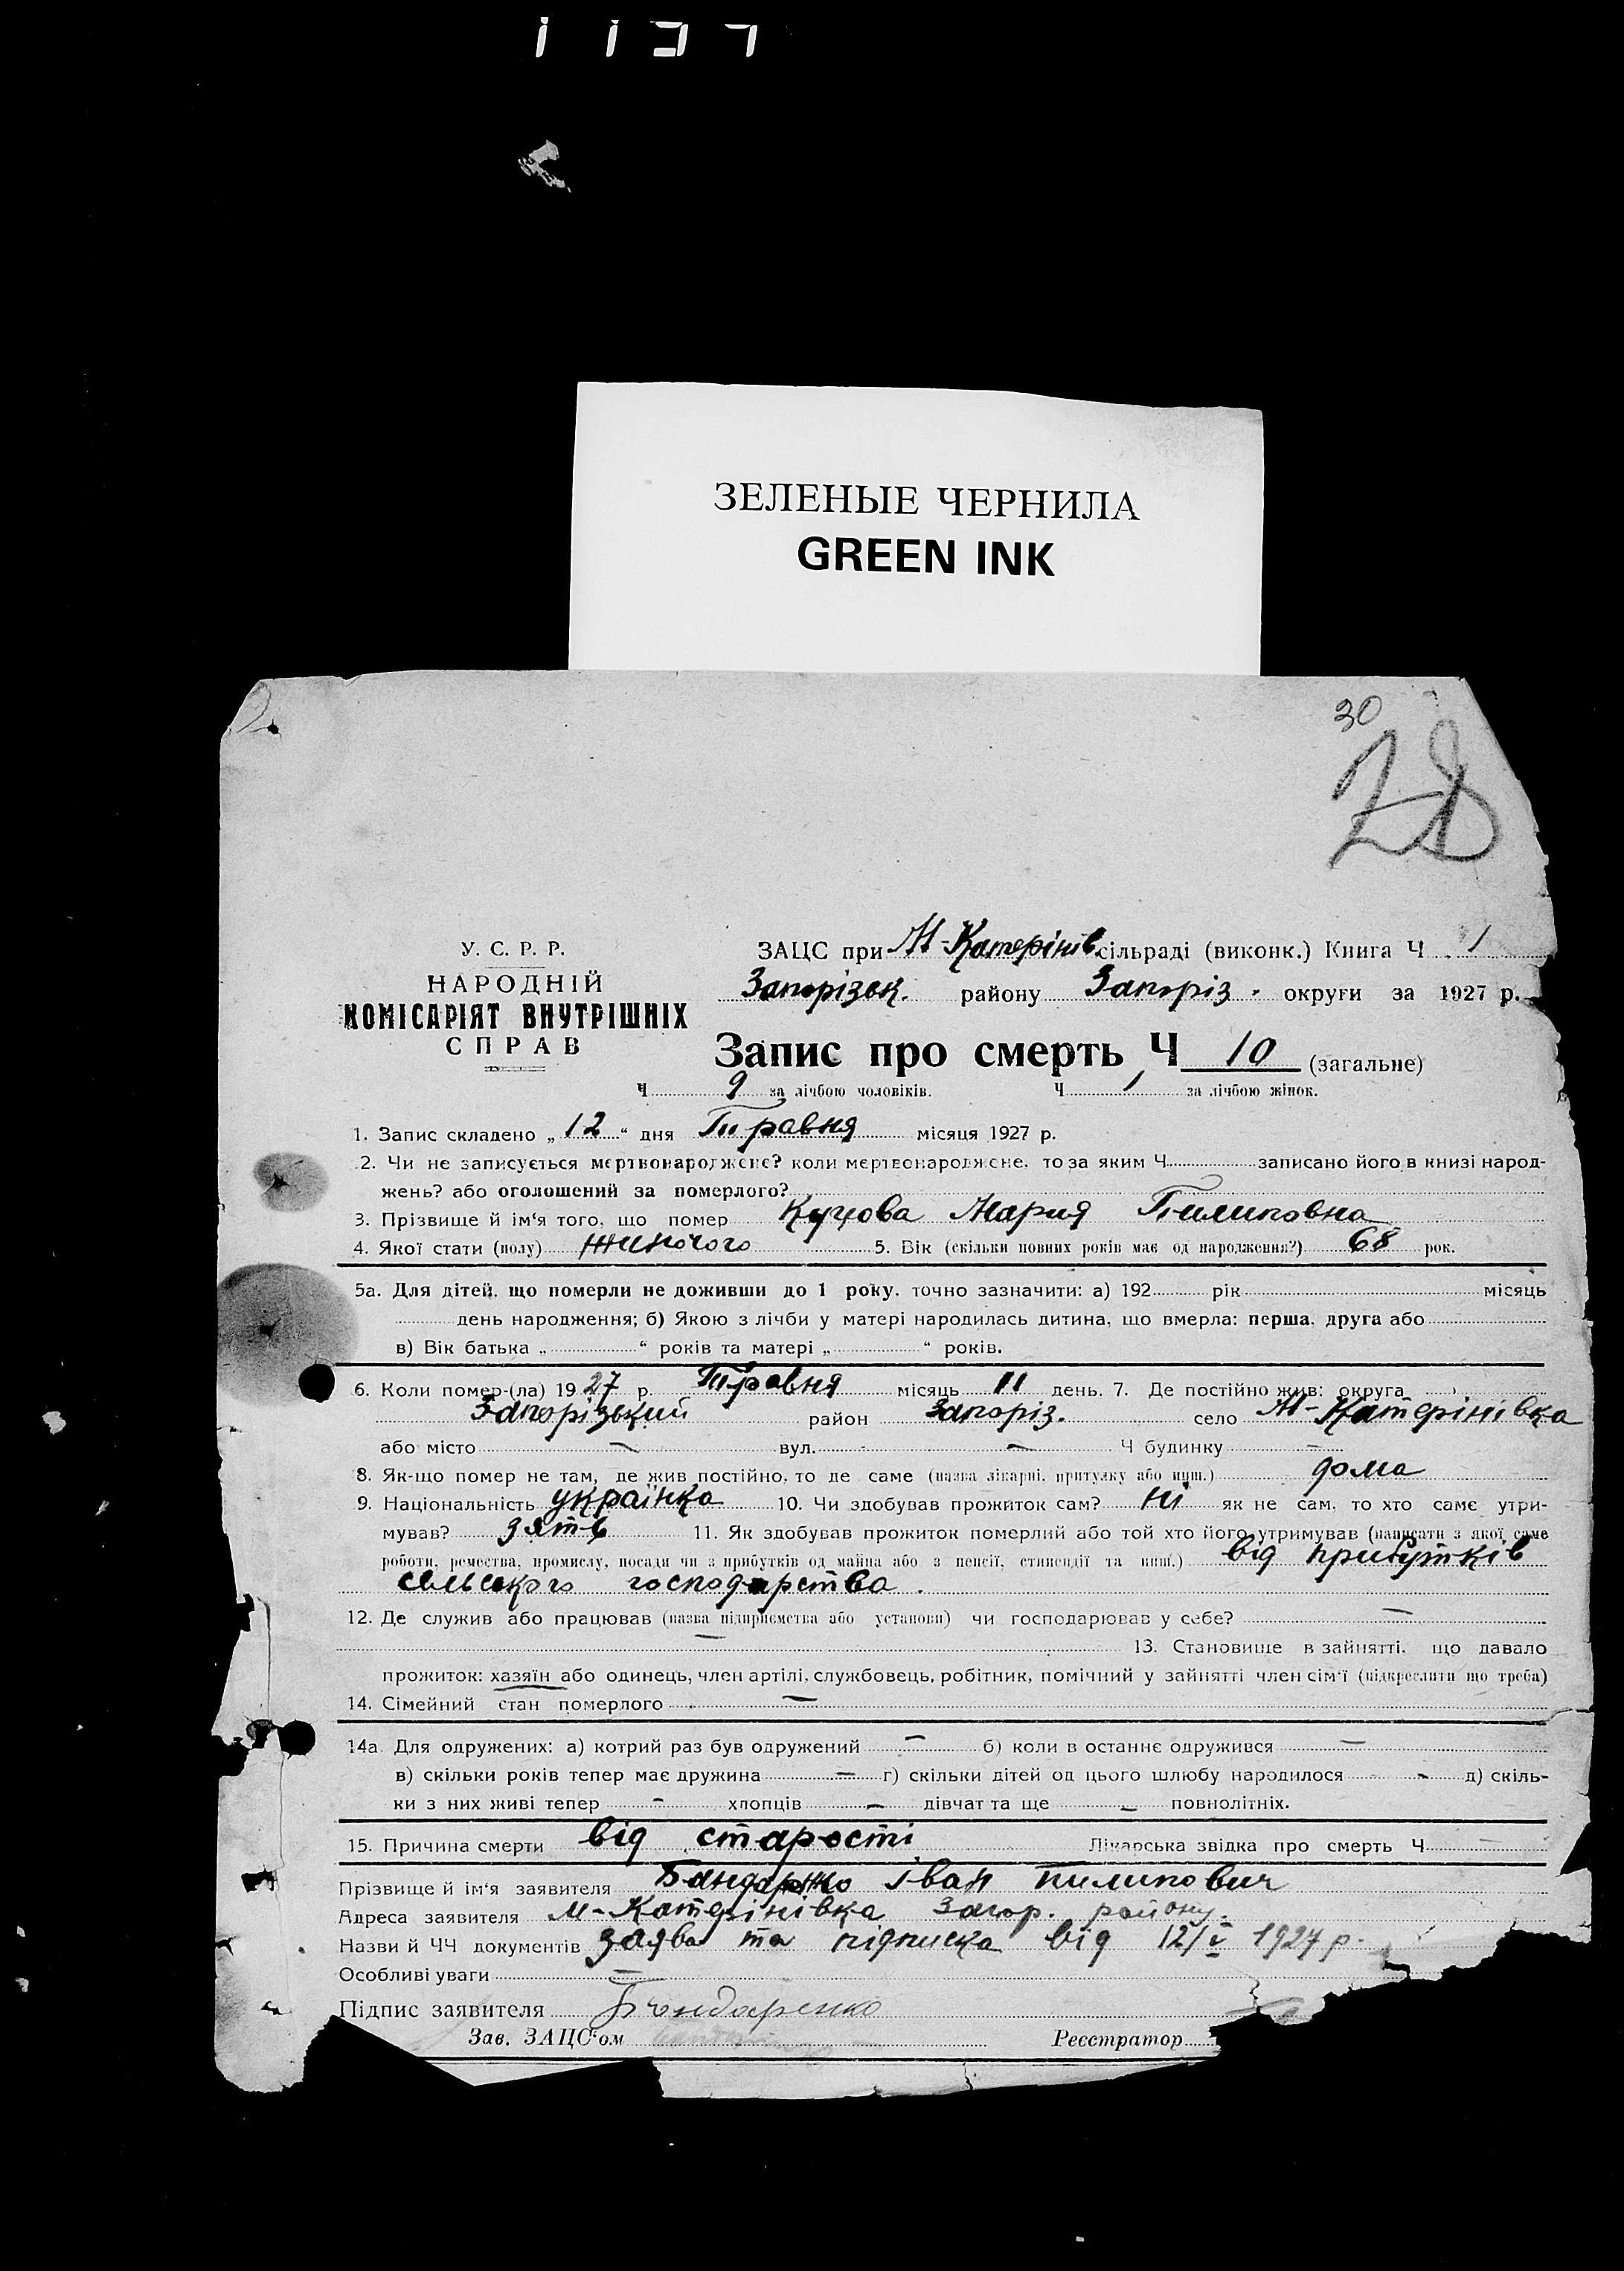 ЗЕЛЕНЫЕ ЧЕРНИЛА
GREEN INK
30
28
У. С. Р. Р.
НАРОДНІЙ
КОМІСАРІЯТ ВНУТРІШНІХ
СПРАВ
ЗАЦС при М-Катерінів. сільраді (виконк.) Книга Ч. 1
Запорізьк. району Запоріз. округи за 1927 р.
Запис про смерть Ч 10 (загальне)
Ч 9 за лічбою чоловіків. Ч 1 за лічбою жінок.
1. Запис складено „12“ дня Травня місяця 1927 р.
2. Чи не записується мертвонароджене? коли мертвонароджене, то за яким Ч. записано його в книзі народ-
жень? або оголошений за померлого?
3. Прізвище й ім‘я того, що помер Куцова Мария Пилиповна
4. Якої стати (полу) Жиночого 5. Вік (скільки повних років має од народження?) 68 рок.
5а. Для дітей, що померли не доживши до 1 року, точно зазначити: а) 192 рік місяць
день народження; б) Якою з лічби у матері народилась дитина, що вмерла: перша, друга або
в) Вік батька „ “ років та матері „ “ років.
6. Коли помер-(ла) 1927 р. Травня місяць 11 день. 7. Де постійно жив: округа
Запорізький район Запоріз. село М-Катерінівка
або місто — вул. — Ч будинку —
8. Як-що помер не там, де жив постійно, то де саме (назва лікарні, притулку або инш.) дома
9. Національність українка 10. Чи здобував прожиток сам? ні як не сам, то хто саме утри-
мував? зять 11. Як здобував прожиток померлий або той хто його утримував (написати з якої саме
роботи, ремества, промислу, посади чи з прибутків од майна або з пенсії, стипендії та инш.) від прибутків
сельского господарства.
12. Де служив або працював (назва підприємства або установи) чи господарював у себе? —
— 13. Становище в зайнятті, що давало
прожиток: хазяїн або одинець, член артілі, службовець, робітник, помічний у зайнятті член сім‘ї (підкреслити що треба)
14. Сімейний стан померлого —
14а. Для одружених: а) котрий раз був одружений — б) коли в останнє одружився —
в) скільки років тепер має дружина — г) скільки дітей од цього шлюбу народилося - д) скіль-
ки з них живі тепер - хлопців — дівчат та ще — повнолітніх.
15. Причина смерти від старості Лікарська звідка про смерть Ч. —
Прізвище й ім‘я заявителя Іван Пилипович
Адреса заявителя М-Катерінівка Запор. району.
Назви й ЧЧ документів Заява та підписка від 12/V 1927 р.
Особливі уваги —
Підпис заявителя Бондаренко
Зав. ЗАЦС‘ом Реєстратор